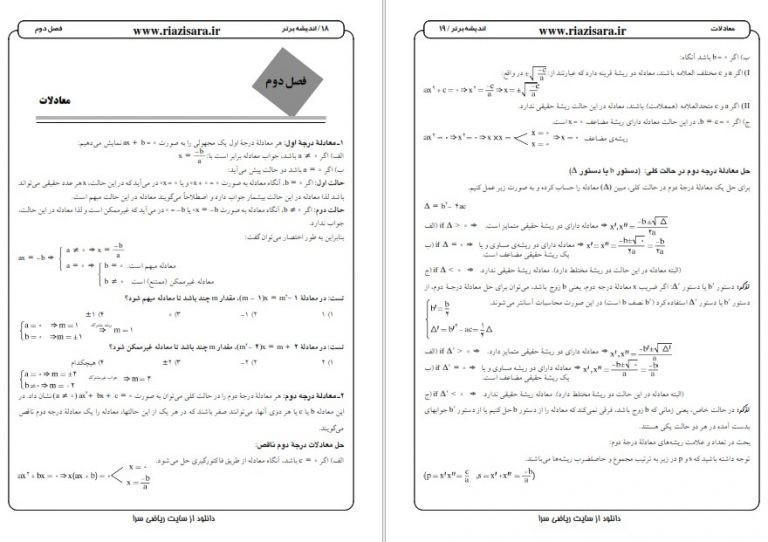 فصل دوم
www.riazisara.ir
۱۸ / اندیشه برتر
فصل دوم
معادلات
۱ـ معادلهٔ درجهٔ اول: هر معادلهٔ درجهٔ اول یک مجهولی را به صورت ax + b = ۰ نمایش می‌دهیم:
الف) اگر a ≠ ۰ باشد، جواب معادله برابر است با: x = −b/a
ب) اگر a = ۰ باشد دو حالت پیش می‌آید:
حالت اول: اگر b = ۰، آنگاه معادله به صورت ۰ = ۰ + x×۰ و یا ۰ = x×۰ در می‌آید که در این حالت، x هر عدد حقیقی می‌تواند
باشد لذا معادله در این حالت بیشمار جواب دارد و اصطلاحاً می‌گویند معادله در این حالت مبهم است.
حالت دوم: اگر b ≠ ۰، آنگاه معادله به صورت −b = x×۰ یا −b = ۰ در می‌آید که غیرممکن است و لذا معادله در این حالت،
جواب ندارد.
بنابراین به طور اختصار می‌توان گفت:
ax = −b ⇒ { a ≠ ۰ ⇒ x = −b/a
a = ۰ ⇒ { b = ۰ معادله مبهم است.
b ≠ ۰ معادله غیرممکن (ممتنع) است
تست: در معادلهٔ (m − 1)x = m² − 1، مقدار m چند باشد تا معادله مبهم شود؟
۱) ۱ ۲) −۱ ۳) ۰ ۴) ±۱
{ a = ۰ ⇒ m = ۱
b = ۰ ⇒ m = ±۱ ⇒ m = ۱
تست: در معادلهٔ (m² − ۴)x = m + ۲ مقدار m چند باشد تا معادله غیرممکن شود؟
۱) ۲ ۲) −۲ ۳) ±۲ ۴) هیچکدام
{ a = ۰ ⇒ m = ±۲
b ≠ ۰ ⇒ m ≠ −۲ ⇒ m = ۲
۲ـ معادلهٔ درجه دوم: هر معادلهٔ درجهٔ دوم را در حالت کلی می‌توان به صورت ax² + bx + c = ۰ (a ≠ ۰) نشان داد. در
این معادله b یا c یا هر دوی آنها، می‌توانند صفر باشند که در هر یک از این حالتها، معادله را یک معادلهٔ درجه دوم ناقص
می‌گویند.
حل معادلات درجهٔ دوم ناقص:
الف) اگر c = ۰ باشد، آنگاه معادله از طریق فاکتورگیری حل می‌شود.
ax² + bx = ۰ ⇒ x(ax + b) = ۰ < x = ۰
x = −b/a
دانلود از سایت ریاضی سرا
معادلات
www.riazisara.ir
اندیشه برتر / ۱۹
ب) اگر b = ۰ باشد آنگاه:
I) اگر a و c مختلف العلامه باشند، معادله دو ریشهٔ قرینه دارد که عبارتند از: ±√(−c/a) در واقع:
ax² + c = ۰ ⇒ x² = −c/a ⇒ x = ±√(−c/a)
II) اگر a و c متحدالعلامه (هم‌علامت) باشند، معادله در این حالت ریشهٔ حقیقی ندارد.
ج) اگر b = c = ۰، در این حالت معادله دارای ریشهٔ مضاعف x = ۰ است.
ax² = ۰ ⇒ x² = ۰ ⇒ x × x = ۰ < x = ۰
x = ۰ ریشه‌ی مضاعف
حل معادلهٔ درجهٔ دوم در حالت کلی: (دستور b یا دستور Δ)
برای حل یک معادلهٔ درجهٔ دوم در حالت کلی، مبین (Δ) معادله را حساب کرده و به صورت زیر عمل کنیم.
Δ = b² − ۴ac
الف) if Δ > ۰ ⇒ معادله دارای دو ریشهٔ حقیقی متمایز است. ⇒ x′, x″ = (−b ± √Δ)/۲a
ب) if Δ = ۰ ⇒ معادله دارای دو ریشه‌ی مساوی و یا یک ریشهٔ حقیقی مضاعف است. ⇒ x′ = x″ = −b/۲a
ج) if Δ < ۰ ⇒ معادله ریشهٔ حقیقی ندارد. (البته معادله در این حالت دو ریشهٔ مختلط دارد).
تذکر: دستور b′ یا دستور Δ′: اگر ضریب x معادله درجه دوم، یعنی b زوج باشد، می‌توان برای حل معادلهٔ درجهٔ دوم، از
دستور b′ یا دستور Δ′ استفاده کرد (b′ نصف b است) در این صورت محاسبات آسانتر می‌شوند.
{ b′ = b/۲
Δ′ = b′² − ac = ۱/۴ Δ
الف) if Δ′ > ۰ ⇒ معادله دارای دو ریشهٔ حقیقی متمایز دارد. ⇒ x′, x″ = (−b′ ± √Δ′)/a
ب) if Δ′ = ۰ ⇒ معادله دارای دو ریشهٔ مساوی و یا یک ریشهٔ حقیقی مضاعف است. ⇒ x′, x″ = −b′/a
ج) if Δ′ < ۰ ⇒ معادله ریشهٔ حقیقی ندارد. (البته معادله در این حالت دو ریشهٔ مختلط دارد).
تذکر: در حالت خاص، یعنی زمانی که b زوج باشد، فرقی نمی‌کند که معادله را از دستور b حل کنیم یا از دستور b′ جوابهای
بدست آمده در هر دو حالت یکی هستند.
بحث در تعداد و علامت ریشه‌های معادلهٔ درجهٔ دوم:
توجه داشته باشید که s و p در زیر به ترتیب مجموع و حاصلضرب ریشه‌ها می‌باشند.
(p = x′x″ = c/a , s = x′ + x″ = −b/a)
دانلود از سایت ریاضی سرا